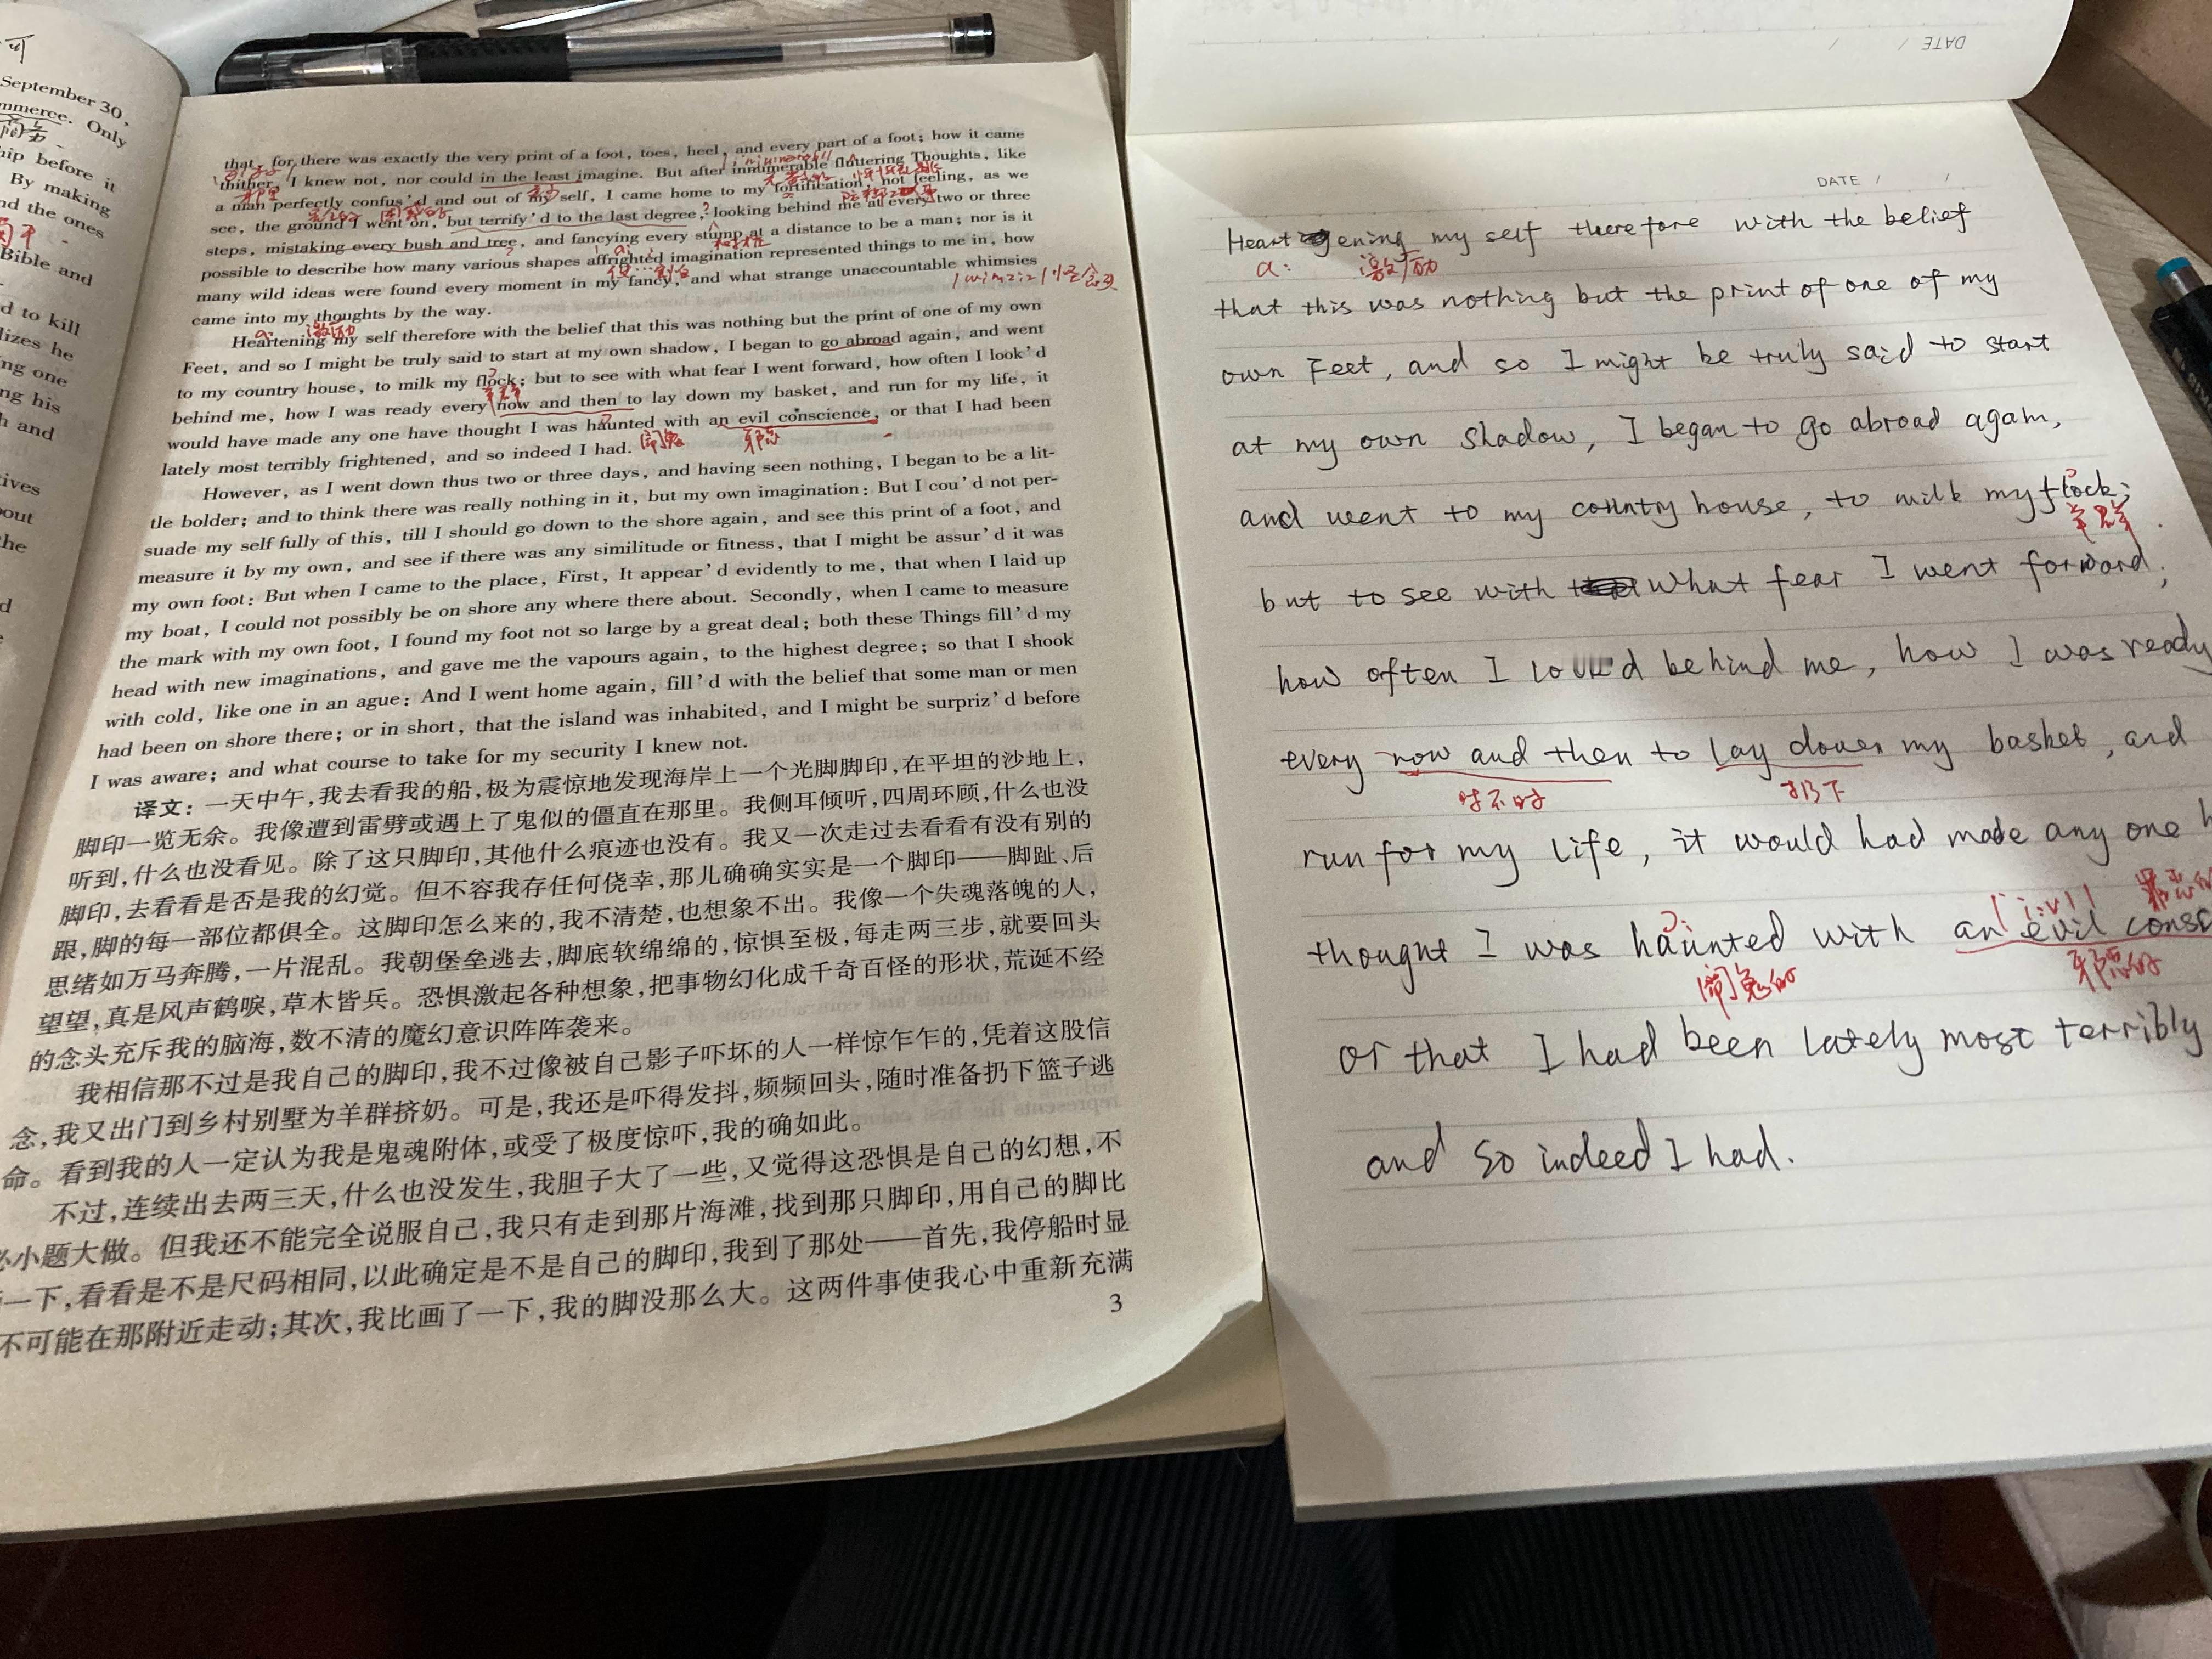 可
September 30,
mmerce. Only
商务
hip before it
By making
nd the ones
Bible and
d to kill
lizes he
ng one
ng his
h and
ives
out
the
d
that, for there was exactly the very print of a foot, toes, heel, and every part of a foot; how it came
thither, I knew not, nor could in the least imagine. But after innumerable fluttering Thoughts, like
那里
a man perfectly confus'd and out of my self, I came home to my fortification, not feeling, as we
see, the ground I went on, but terrify'd to the last degree, looking behind me at every two or three
steps, mistaking every bush and tree, and fancying every stump at a distance to be a man; nor is it
树桩
possible to describe how many various shapes affrighted imagination represented things to me in, how
many wild ideas were found every moment in my fancy, and what strange unaccountable whimsies
came into my thoughts by the way.
a: 激励
Heartening my self therefore with the belief that this was nothing but the print of one of my own
Feet, and so I might be truly said to start at my own shadow, I began to go abroad again, and went
to my country house, to milk my flock; but to see with what fear I went forward, how often I look'd
羊群
behind me, how I was ready every now and then to lay down my basket, and run for my life, it
would have made any one have thought I was haunted with an evil conscience, or that I had been
闹鬼 邪恶
lately most terribly frightened, and so indeed I had.
However, as I went down thus two or three days, and having seen nothing, I began to be a lit-
tle bolder; and to think there was really nothing in it, but my own imagination: But I cou'd not per-
suade my self fully of this, till I should go down to the shore again, and see this print of a foot, and
measure it by my own, and see if there was any similitude or fitness, that I might be assur'd it was
my own foot: But when I came to the place, First, It appear'd evidently to me, that when I laid up
my boat, I could not possibly be on shore any where there about. Secondly, when I came to measure
the mark with my own foot, I found my foot not so large by a great deal; both these Things fill'd my
head with new imaginations, and gave me the vapours again, to the highest degree; so that I shook
with cold, like one in an ague: And I went home again, fill'd with the belief that some man or men
had been on shore there; or in short, that the island was inhabited, and I might be surpriz'd before
I was aware; and what course to take for my security I knew not.
译文：一天中午,我去看我的船,极为震惊地发现海岸上一个光脚脚印,在平坦的沙地上,
脚印一览无余。我像遭到雷劈或遇上了鬼似的僵直在那里。我侧耳倾听,四周环顾,什么也没
听到,什么也没看见。除了这只脚印,其他什么痕迹也没有。我又一次走过去看看有没有别的
脚印,去看看是否是我的幻觉。但不容我存任何侥幸,那儿确确实实是一个脚印——脚趾、后
跟,脚的每一部位都俱全。这脚印怎么来的,我不清楚,也想象不出。我像一个失魂落魄的人,
思绪如万马奔腾,一片混乱。我朝堡垒逃去,脚底软绵绵的,惊惧至极,每走两三步,就要回头
望望,真是风声鹤唳,草木皆兵。恐惧激起各种想象,把事物幻化成千奇百怪的形状,荒诞不经
的念头充斥我的脑海,数不清的魔幻意识阵阵袭来。
我相信那不过是我自己的脚印,我不过像被自己影子吓坏的人一样惊乍乍的,凭着这股信
念,我又出门到乡村别墅为羊群挤奶。可是,我还是吓得发抖,频频回头,随时准备扔下篮子逃
命。看到我的人一定认为我是鬼魂附体,或受了极度惊吓,我的确如此。
不过,连续出去两三天,什么也没发生,我胆子大了一些,又觉得这恐惧是自己的幻想,不
必小题大做。但我还不能完全说服自己,我只有走到那片海滩,找到那只脚印,用自己的脚比
一下,看看是不是尺码相同,以此确定是不是自己的脚印,我到了那处——首先,我停船时显
不可能在那附近走动;其次,我比画了一下,我的脚没那么大。这两件事使我心中重新充满
3
DATE / /
DATE / /
Heartening my self therefore with the belief
a: 激励
that this was nothing but the print of one of my
own Feet, and so I might be truly said to start
at my own shadow, I began to go abroad again,
and went to my country house, to milk my flock;
羊群
but to see with what fear I went forward,
how often I look'd behind me, how I was ready
every now and then to lay down my basket, and
时不时 扔下
run for my life, it would had made any one h
[i:vl] 罪恶的
thought I was haunted with an evil consc
闹鬼的 邪恶的
or that I had been lately most terribly
and so indeed I had.